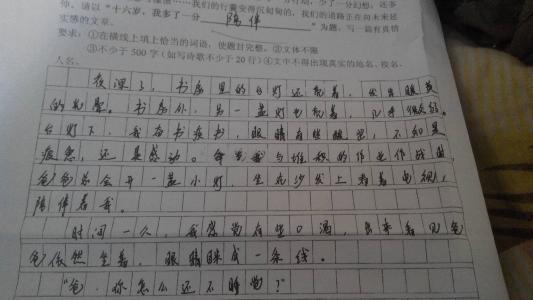 我们的行囊变得沉甸甸的，我们的道路正在向未来延
伸。请以“十六岁，我多了一分 陪伴 ”为题，写一篇有真情
实感的文章。
要求：①在横线上填上恰当的词语，使题目完整。②文体不限
③不少于500字(如写诗歌不少于20行)④文中不得出现真实的地名、校名、
人名。
夜深了，书房里的台灯还亮着，发出暖黄
的光晕。书房外，另一盏灯也亮着，
台灯下，我在书疾书，眼睛有些酸涩，不知是
疲惫，还是感动。每当我与堆积的作业作战时，
爸爸总会开一盏小灯，坐在沙发上看着电视，
陪伴着我。
时间一久，我感觉有些口渴，出来看见爸
爸依然坐着，眼睛眯成一条线。
“爸，你怎么还不睡觉？”